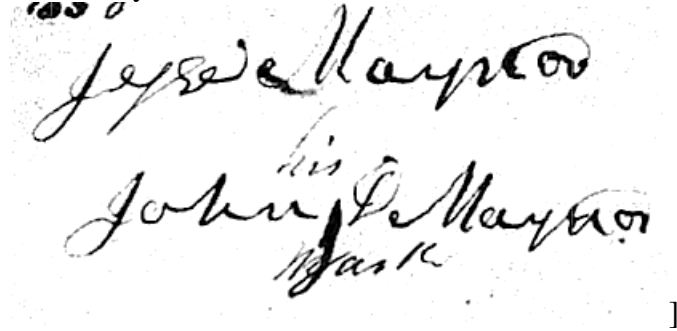 Jesse Maynor
his
John Maynor
mark
]